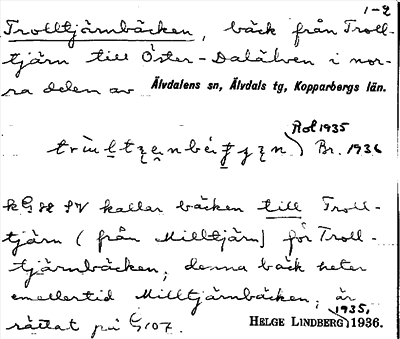 1-2
Trolltjärnbäcken, bäck från Troll-
tjärn till Öster-Dalälven i nor-
ra delen av Älvdalens sn, Älvdals tg, Kopparbergs län.
Rol 1935
Br. 1936
kallar bäcken till Troll-
tjärn (från Milltjärn) för Troll-
tjärnbäcken; denna bäck heter
emellertid Milltjärnbäcken; är
rättat på G107.
HELGE LINDBERG, 1935, 1936.